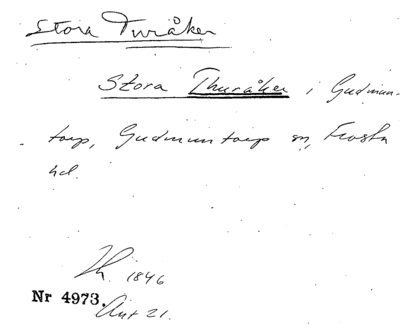 Stora Turåker
Stora Thuråker i Gudmun-
torp, Gudmuntorp sn, Frosta
hd.
Th. 1846
Nr 4973. Ant 21.